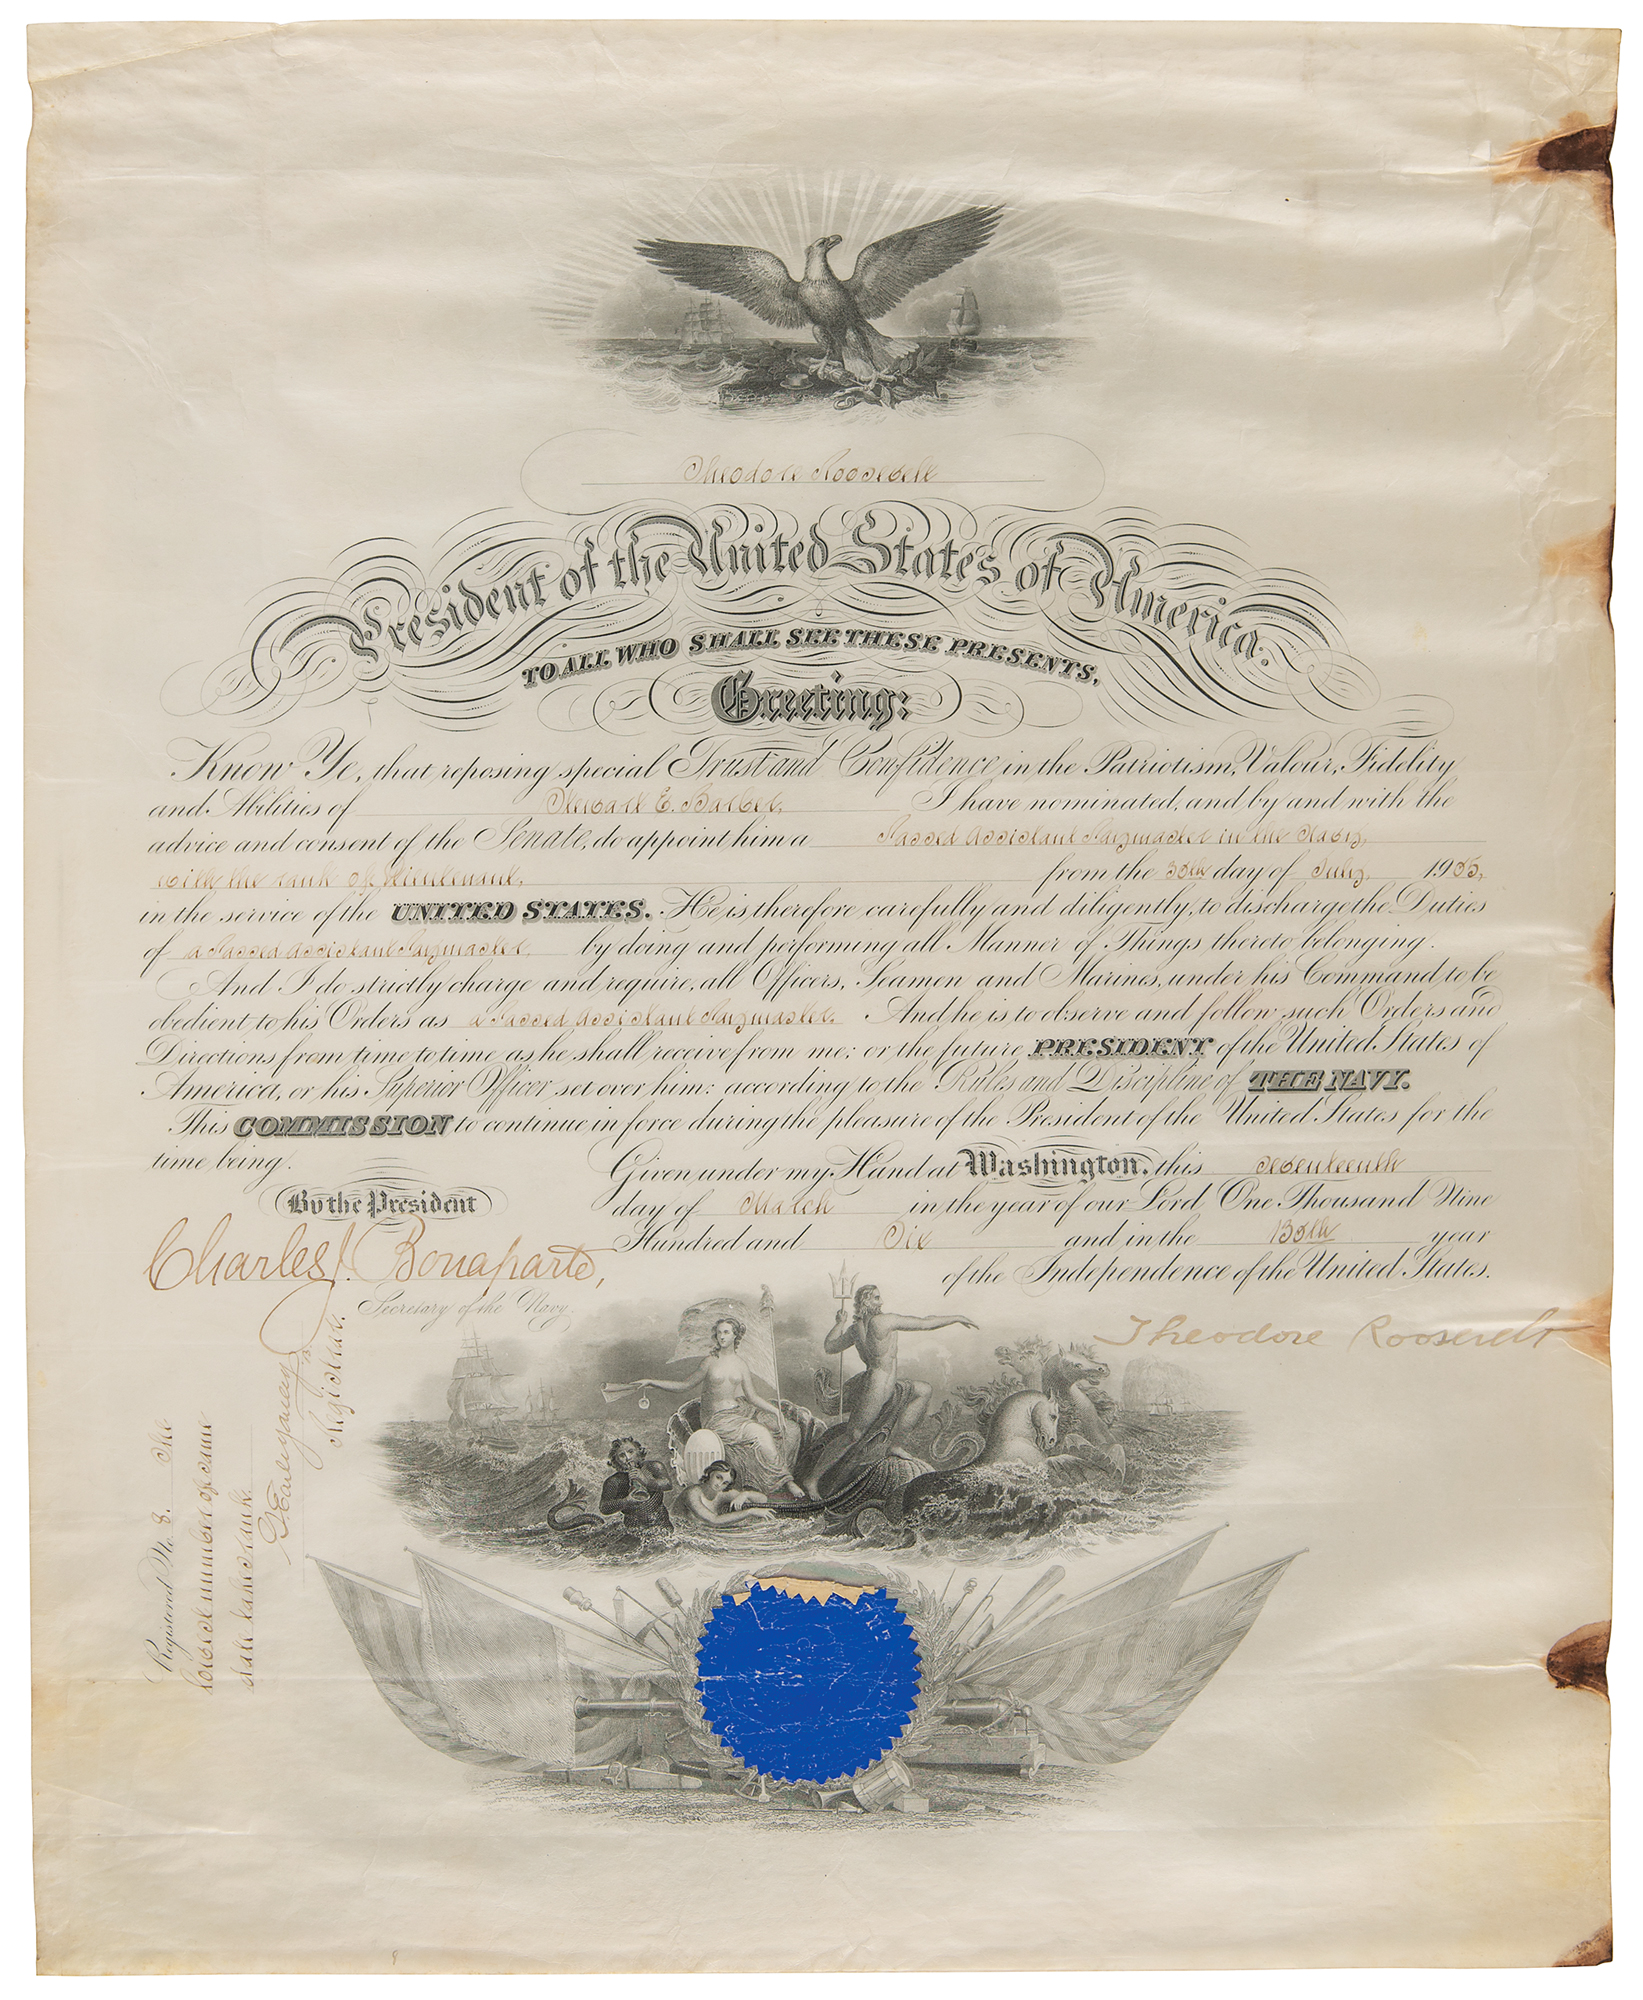 Theodore Roosevelt
President of the United States of America.
TO ALL WHO SHALL SEE THESE PRESENTS,
Greeting:
Know Ye, that reposing special Trust and Confidence in the Patriotism, Valour, Fidelity
and Abilities of Stewart E. Barber, I have nominated, and by and with the
advice and consent of the Senate, do appoint him a Passed Assistant Paymaster in the Navy,
with the rank of Lieutenant, from the 30th day of July, 1905,
in the service of the UNITED STATES. He is therefore carefully and diligently to discharge the Duties
of a Passed Assistant Paymaster, by doing and performing all Manner of Things thereto belonging.
And I do strictly charge and require all Officers, Seamen and Marines, under his Command to be
obedient to his Orders as a Passed Assistant Paymaster. And he is to observe and follow such Orders and
Directions from time to time as he shall receive from me; or the future PRESIDENT of the United States of
America, or his Superior Officer set over him: according to the Rules and Discipline of THE NAVY.
This COMMISSION to continue in force during the pleasure of the President of the United States for the
time being.
Given under my Hand at Washington, this seventeenth
day of March in the year of our Lord One Thousand Nine
Hundred and Six and in the 130th year
of the Independence of the United States.
By the President
Charles J. Bonaparte,
Secretary of the Navy.
Theodore Roosevelt
Registered No. 8. The
lowest number of same
date takes rank.
Registrar.